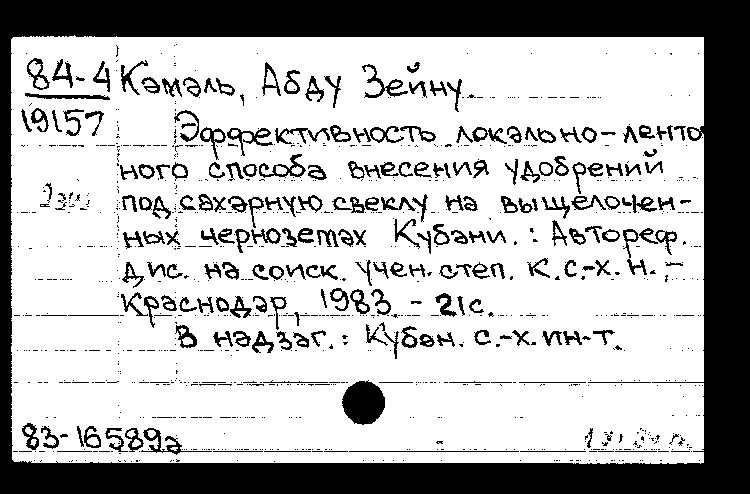 84-4 Камаль, Абду Зейну.
19157
Эффективность локально-ленточ
ного способа внесения удобрений
под сахарную свеклу на выщелочен-
ных черноземах Кубани. : Автореф.
дис. на соиск. учен. степ. к.с.-х.н. -
Краснодар, 1983. - 21с.
В надзаг.: Кубан. с.-х. ин-т.
83-16589а